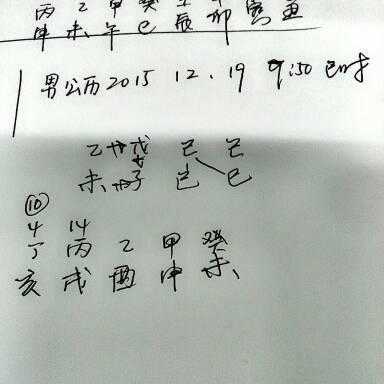 丙 乙 甲 癸
申 未 午 巳 辰 卯 寅 丑
男公历2015 12.19 9:50 巳时
乙 戊 己 己
未 子 巳 巳
⑩
4 14
丁 丙 乙 甲 癸
亥 戌 酉 申 未